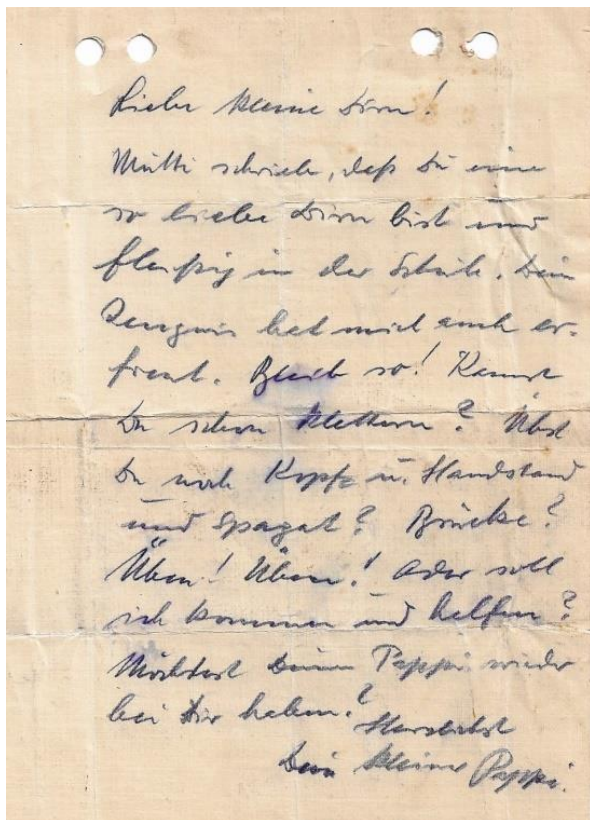 Liebe kleine Dirn!
Mutti schrieb, daß Du eine
so liebe Dirn bist und
fleißig in der Schule. Dein
Zeugnis hat mich auch er-
freut. Bleib so! Kannst
Du schon klettern? Übst
Du noch Kopf= u. Handstand
und Spagat? Brücke?
Üben! Üben! Oder soll
ich kommen und helfen?
Möchtest Deinen Pappi wieder
bei Dir haben?
Herzlichst
Dein kleiner Pappi.